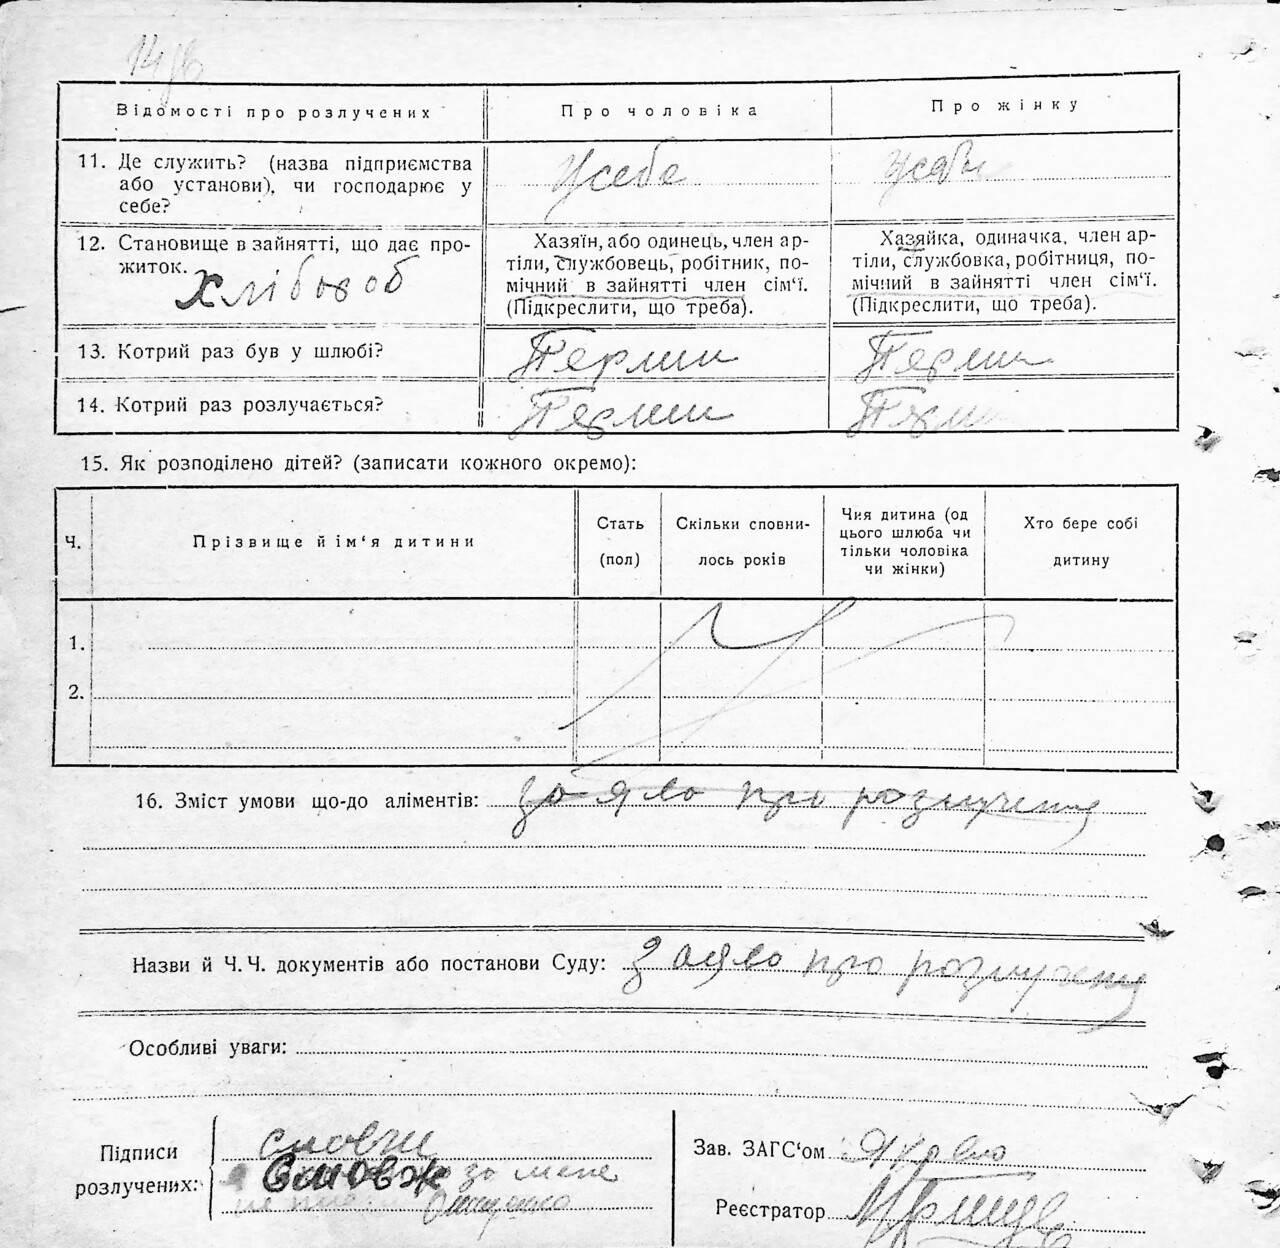 Відомості про розлучених
Про чоловіка
Про жінку
11. Де служить? (назва підприємства
або установи), чи господарює у
себе?
Усебе
Усебе
12. Становище в зайнятті, що дає про-
житок.
Хлібороб
Хазяїн, або одинець, член ар-
тіли, службовець, робітник, по-
мічний в зайнятті член сім‘ї.
(Підкреслити, що треба).
Хазяйка, одиначка, член ар-
тіли, службовка, робітниця, по-
мічний в зайнятті член сім‘ї.
(Підкреслити, що треба).
13. Котрий раз був у шлюбі?
Перший
Перший
14. Котрий раз розлучається?
Перший
15. Як розподілено дітей? (записати кожного окремо):
Ч.
Прізвище й ім‘я дитини
Стать
(пол)
Скільки сповни-
лось років
Чия дитина (од
цього шлюба чи
тільки чоловіка
чи жінки)
Хто бере собі
дитину
1.
2.
16. Зміст умови що-до аліментів: заява про розлучення
Назви й Ч.Ч. документів або постанови Суду: Заява про розлучення
Особливі уваги:
Підписи
розлучених:
за мене
Зав. ЗАГС‘ом
Реєстратор